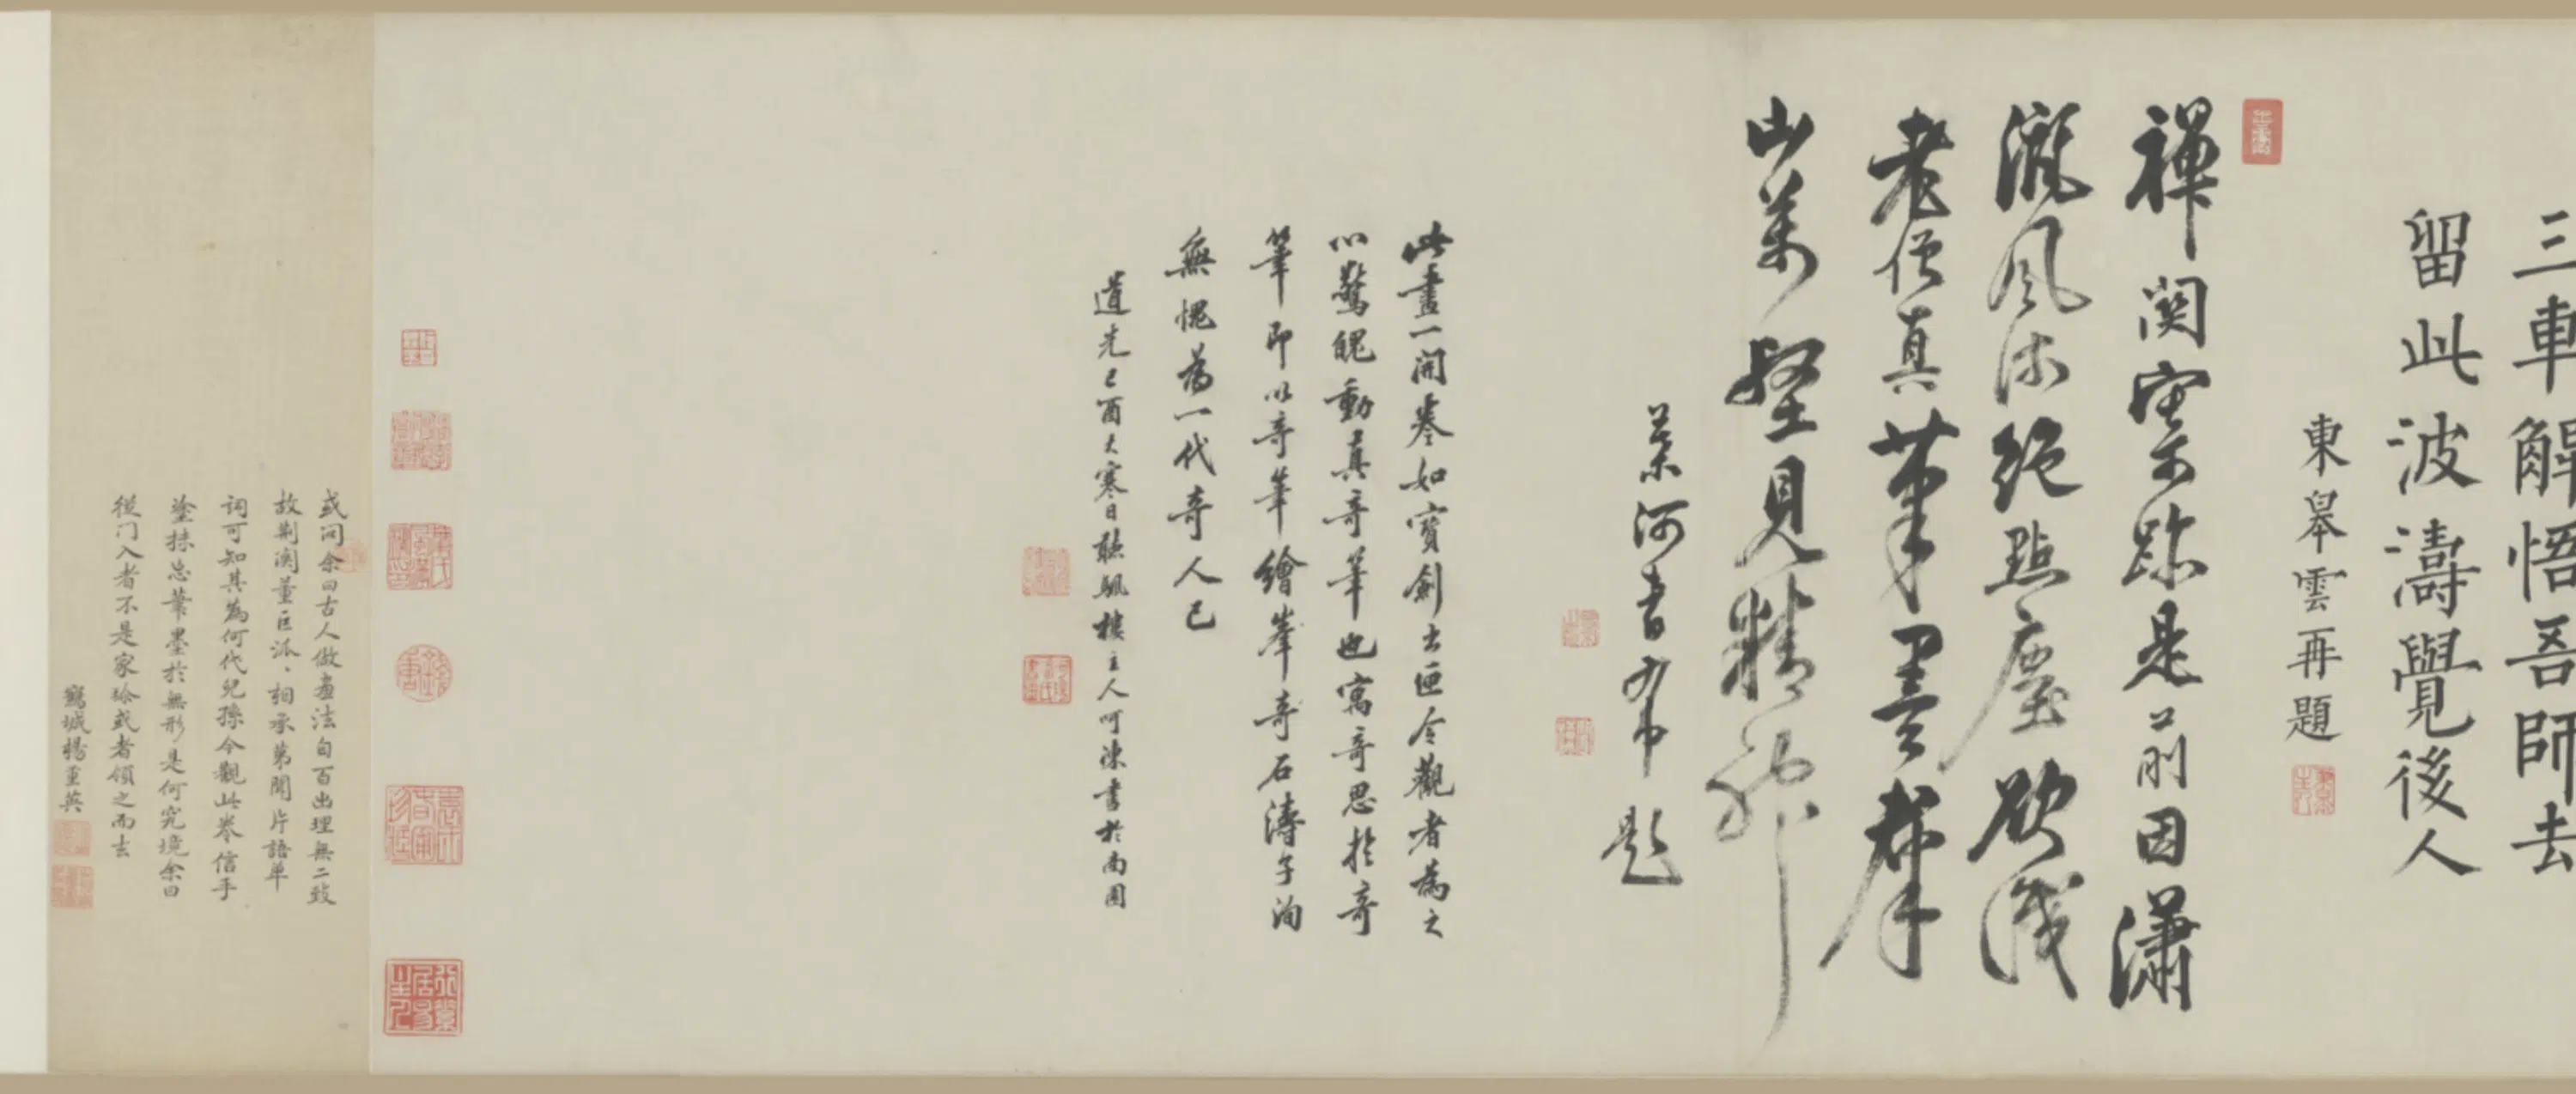 三車解悟吾師去
留此波濤覺後人
東皋雲再題
禪関寄跡是前因瀟
灑風流絕點塵欲識
老僧真筆墨群
山萬壑見精神
葉河青霄題
此畫一開卷如寶劍出匣令觀者為之
心驚魄動真奇筆也寓奇思於奇
筆即以奇筆繪峯奇石濤字洵
無愧為一代奇人已
道光己酉大寒日聽颿樓主人呵凍書於南園
或问余曰古人做畫法自百出理無二致
故荊関董巨派、相承第聞片語单
词可知其為何代兒孫今觀此卷信手
塗抹忘筆墨於無形是何究境余曰
從门入者不是家珍或者領之而去
楊重英